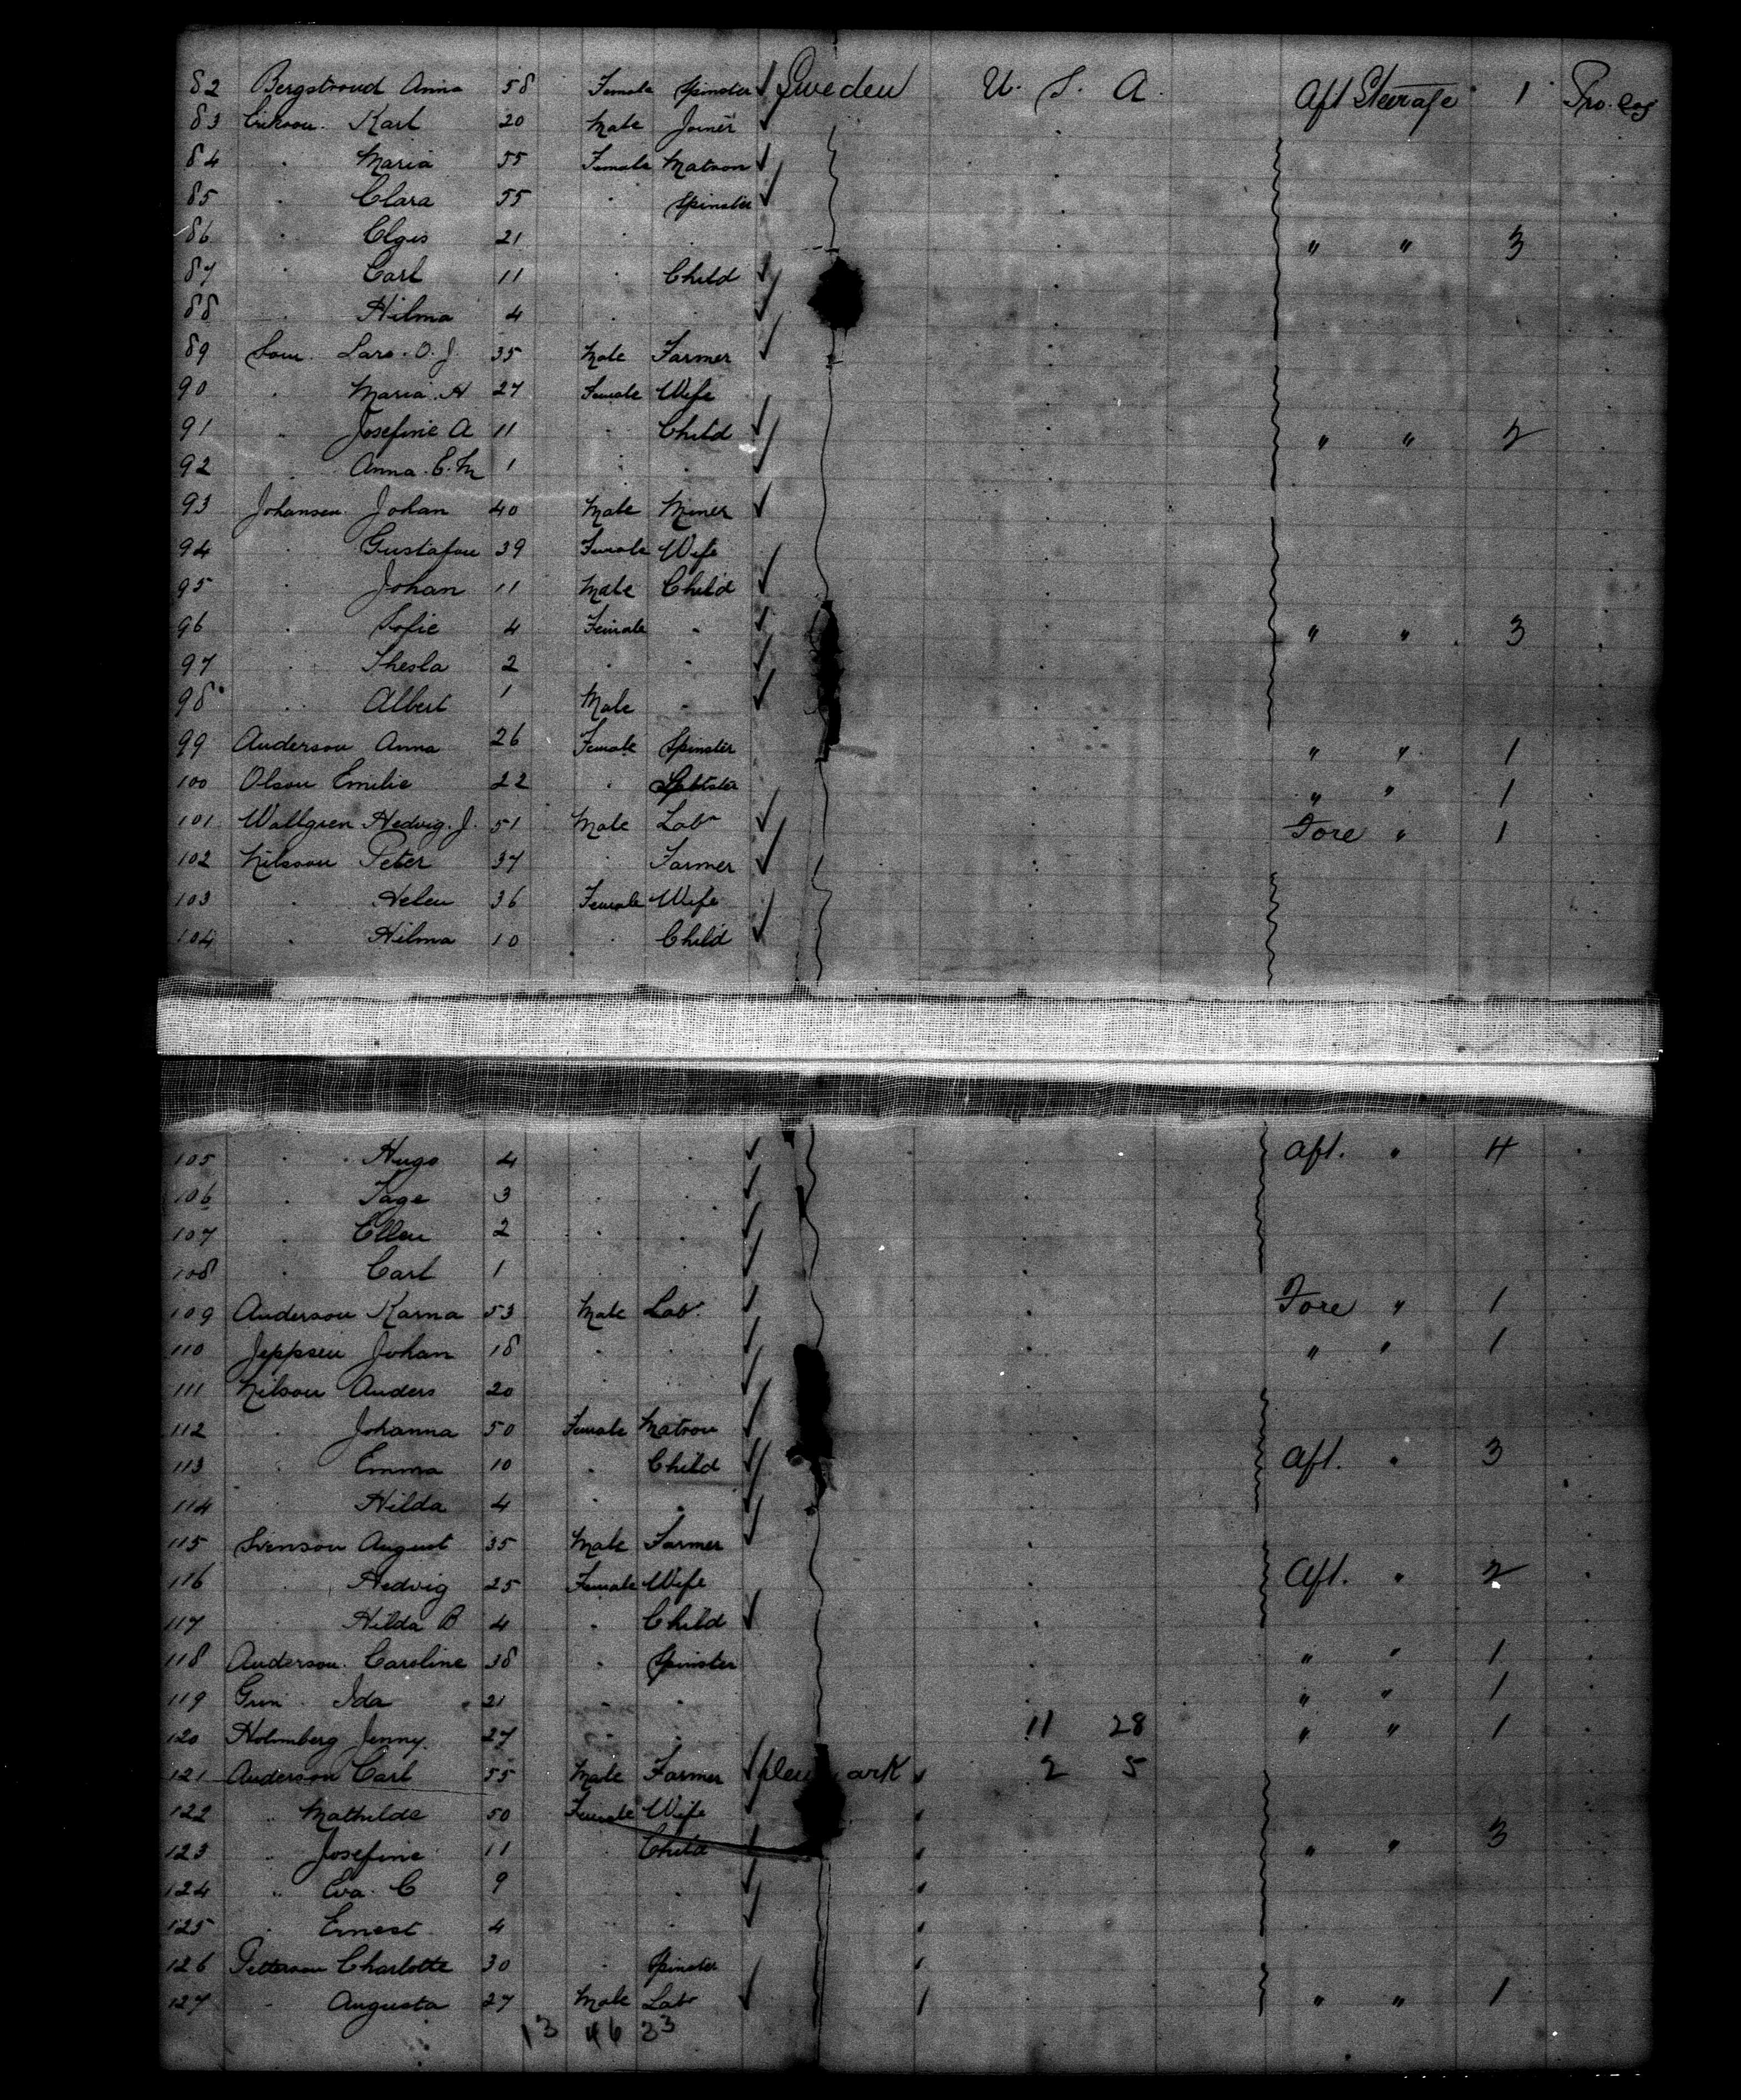 82 Bergstroud Anna 58 Female Spinster Sweden U. S. A. Aft Steerage 1 Pro. Log
83 Erikson Karl 20 Male Joiner
84 " Maria 55 Female Matron
85 " Clara 55 " Spinster
86 " 21 " " " " 3
87 " Carl 11 " Child
88 " Hilma 4 " "
89 Lars. O. J 35 Male Farmer
90 " Maria. A 27 Female Wife
91 " Josefine A 11 " Child " " 2
92 " Anna. E. M 1 " "
93 Johansen Johan 40 Male Miner
94 " Gustafau 39 Female Wife
95 Johan 11 Male Child
96 " Sofie 4 Female " " " 3
97 " Thesla 2 " "
98 " Albert 1 Male "
99 Anderson Anna 26 Female Spinster " " 1
100 Olson Emilie 22 " " " 1
101 Wallgren Hedvig. J. 51 Male Labr Fore " 1
102 Nilsson Peter 37 " Farmer
103 " Helen 36 Female Wife
104 " Hilma 10 " Child
105 " Hugo 4 " " Aft. " 4
106 " Tage 3 " "
107 " Ellen 2 " "
108 " Carl 1 " "
109 Anderson Karna 53 Male Labr Fore " 1
110 Jeppsen Johan 18 " " " " 1
111 Nilson Anders 20 " "
112 " Johanna 50 Female Matron
113 " Emma 10 " Child Aft. " 3
114 " Hilda 4 " "
115 Svenson August 35 Male Farmer
116 " Hedvig 25 Female Wife Aft. " 2
117 " Hilda B 4 " Child
118 Anderson. Caroline 38 " Spinster " " 1
119 Ida 21 " " " " 1
120 Holmberg Jenny. 27 " " 11 28 " " 1
121 Anderson Carl 55 Male Farmer 2 5
122 " Mathilde 50 Female Wife
123 " Josefine 11 " Child " " 3
124 " Eva. C 9 " "
125 " Ernest 4 " "
126 Petterson Charlotte 30 " Spinster
127 " Augusta 27 Male Labr " " 1
13 46 33